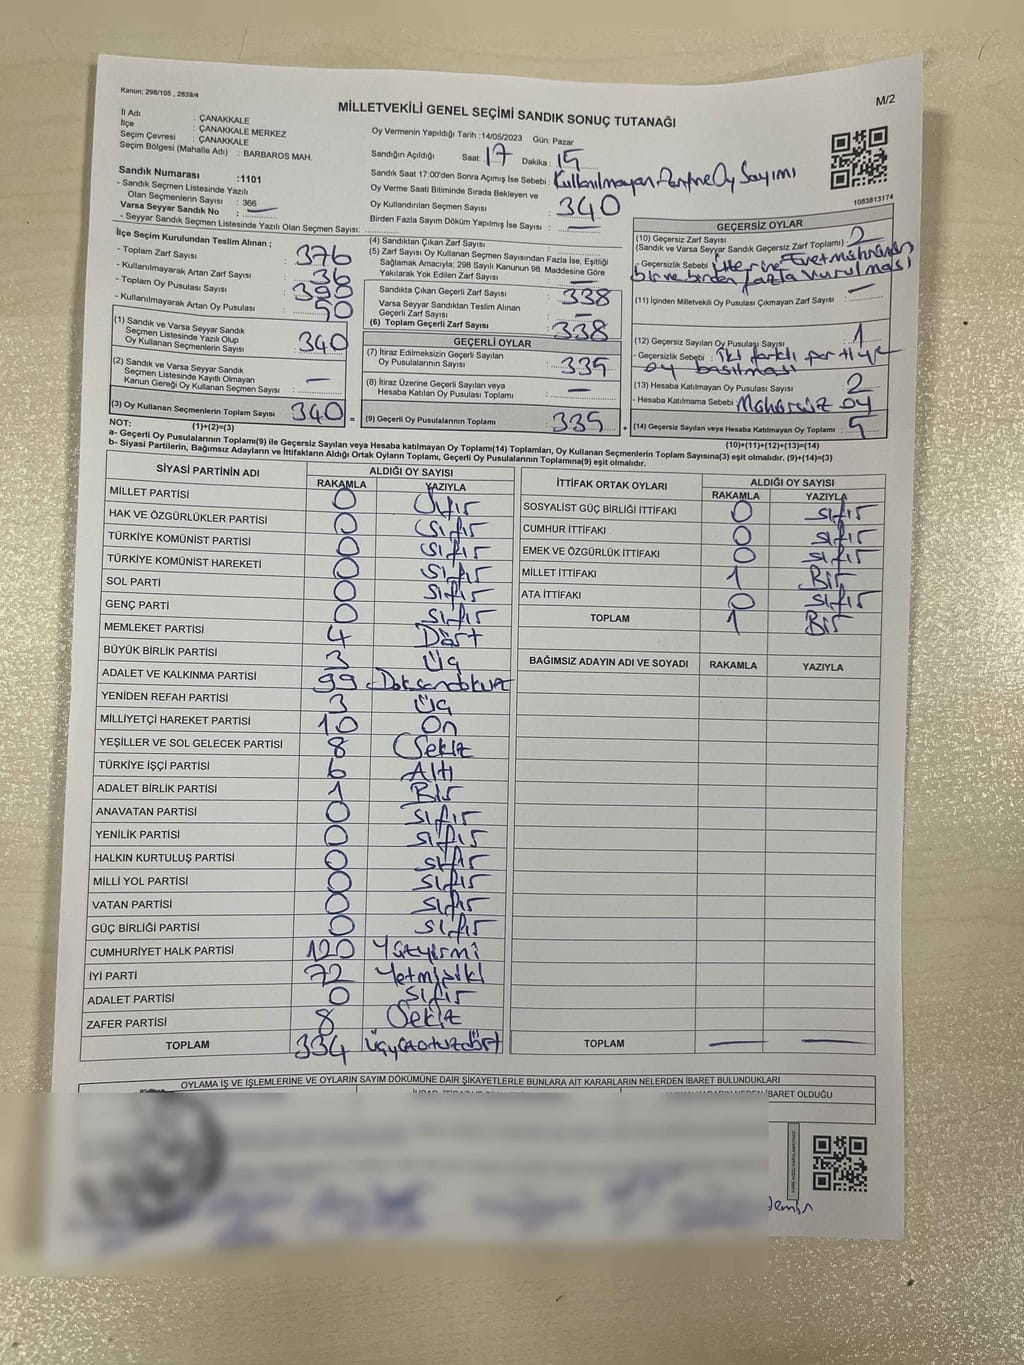 Kanun; 298/105 , 2839/4
M/2
MİLLETVEKİLİ GENEL SEÇİMİ SANDIK SONUÇ TUTANAĞI
İl Adı : ÇANAKKALE
İlçe : ÇANAKKALE MERKEZ
Seçim Çevresi : ÇANAKKALE
Seçim Bölgesi (Mahalle Adı) : BARBAROS MAH.
Sandık Numarası :1101
- Sandık Seçmen Listesinde Yazılı
Olan Seçmenlerin Sayısı : 366
Varsa Seyyar Sandık No : —
- Seyyar Sandık Seçmen Listesinde Yazılı Olan Seçmen Sayısı:
Oy Vermenin Yapıldığı Tarih :14/05/2023 Gün: Pazar
Sandığın Açıldığı Saat : 17 Dakika : 15
Sandık Saat 17:00'den Sonra Açılmış İse Sebebi : Kullanılmayan Oy Sayımı
Oy Verme Saati Bitiminde Sırada Bekleyen ve
Oy Kullandırılan Seçmen Sayısı : 340
Birden Fazla Sayım Döküm Yapılmış İse Sayısı : —
1083813174
İlçe Seçim Kurulundan Teslim Alınan ;
- Toplam Zarf Sayısı : 376
- Kullanılmayarak Artan Zarf Sayısı : 36
- Toplam Oy Pusulası Sayısı : 390
- Kullanılmayarak Artan Oy Pusulası : 50
(1) Sandık ve Varsa Seyyar Sandık
Seçmen Listesinde Yazılı Olup
Oy Kullanan Seçmenlerin Sayısı : 340
(2) Sandık ve Varsa Seyyar Sandık
Seçmen Listesinde Kayıtlı Olmayan
Kanun Gereği Oy Kullanan Seçmen Sayısı : —
(3) Oy Kullanan Seçmenlerin Toplam Sayısı : 340
(4) Sandıktan Çıkan Zarf Sayısı :
(5) Zarf Sayısı Oy Kullanan Seçmen Sayısından Fazla İse, Eşitliği
Sağlamak Amacıyla; 298 Sayılı Kanunun 98. Maddesine Göre
Yakılarak Yok Edilen Zarf Sayısı : —
Sandıkta Çıkan Geçerli Zarf Sayısı : 338
Varsa Seyyar Sandıktan Teslim Alınan
Geçerli Zarf Sayısı : —
(6) Toplam Geçerli Zarf Sayısı : 338
GEÇERLİ OYLAR
(7) İtiraz Edilmeksizin Geçerli Sayılan
Oy Pusulalarının Sayısı : 335
(8) İtiraz Üzerine Geçerli Sayılan veya
Hesaba Katılan Oy Pusulası Toplamı : —
= (9) Geçerli Oy Pusulalarının Toplamı : 335 +
GEÇERSİZ OYLAR
(10) Geçersiz Zarf Sayısı
(Sandık ve Varsa Seyyar Sandık Geçersiz Zarf Toplamı) : 2
- Geçersizlik Sebebi : üzerine Evet mührünün
birden fazla vurulması
(11) İçinden Milletvekili Oy Pusulası Çıkmayan Zarf Sayısı : —
(12) Geçersiz Sayılan Oy Pusulası Sayısı : 1
- Geçersizlik Sebebi : iki farklı partiye
oy basılması
(13) Hesaba Katılmayan Oy Pusulası Sayısı : 2
- Hesaba Katılmama Sebebi : Mühürsüz oy
(14) Geçersiz Sayılan veya Hesaba Katılmayan Oy Toplamı : 5
NOT: (1)+(2)=(3) (10)+(11)+(12)+(13)=(14)
a- Geçerli Oy Pusulalarının Toplamı(9) ile Geçersiz Sayılan veya Hesaba katılmayan Oy Toplamı(14) Toplamları, Oy Kullanan Seçmenlerin Toplam Sayısına(3) eşit olmalıdır. (9)+(14)=(3)
b- Siyasi Partilerin, Bağımsız Adayların ve İttifakların Aldığı Ortak Oyların Toplamı, Geçerli Oy Pusulalarının Toplamına(9) eşit olmalıdır.
SİYASİ PARTİNİN ADI ALDIĞI OY SAYISI
RAKAMLA YAZIYLA
MİLLET PARTİSİ 0 Sıfır
HAK VE ÖZGÜRLÜKLER PARTİSİ 0 Sıfır
TÜRKİYE KOMÜNİST PARTİSİ 0 Sıfır
TÜRKİYE KOMÜNİST HAREKETİ 0 Sıfır
SOL PARTİ 0 Sıfır
GENÇ PARTİ 0 Sıfır
MEMLEKET PARTİSİ 4 Dört
BÜYÜK BİRLİK PARTİSİ 3 Üç
ADALET VE KALKINMA PARTİSİ 99 Doksandokuz
YENİDEN REFAH PARTİSİ 3 Üç
MİLLİYETÇİ HAREKET PARTİSİ 10 On
YEŞİLLER VE SOL GELECEK PARTİSİ 8 Sekiz
TÜRKİYE İŞÇİ PARTİSİ 6 Altı
ADALET BİRLİK PARTİSİ 1 Bir
ANAVATAN PARTİSİ 0 Sıfır
YENİLİK PARTİSİ 0 Sıfır
HALKIN KURTULUŞ PARTİSİ 0 Sıfır
MİLLİ YOL PARTİSİ 0 Sıfır
VATAN PARTİSİ 0 Sıfır
GÜÇ BİRLİĞİ PARTİSİ 0 Sıfır
CUMHURİYET HALK PARTİSİ 120 Yüzyirmi
İYİ PARTİ 72 Yetmişiki
ADALET PARTİSİ 0 Sıfır
ZAFER PARTİSİ 8 Sekiz
TOPLAM 334 üçyüzotuzdört
İTTİFAK ORTAK OYLARI ALDIĞI OY SAYISI
RAKAMLA YAZIYLA
SOSYALİST GÜÇ BİRLİĞİ İTTİFAKI 0 Sıfır
CUMHUR İTTİFAKI 0 Sıfır
EMEK VE ÖZGÜRLÜK İTTİFAKI 0 Sıfır
MİLLET İTTİFAKI 1 Bir
ATA İTTİFAKI 0 Sıfır
TOPLAM 1 Bir
BAĞIMSIZ ADAYIN ADI VE SOYADI RAKAMLA YAZIYLA
TOPLAM — —
OYLAMA İŞ VE İŞLEMLERİNE VE OYLARIN SAYIM DÖKÜMÜNE DAİR ŞİKAYETLERLE BUNLARA AİT KARARLARIN NELERDEN İBARET BULUNDUKLARI
İBARET OLDUĞU